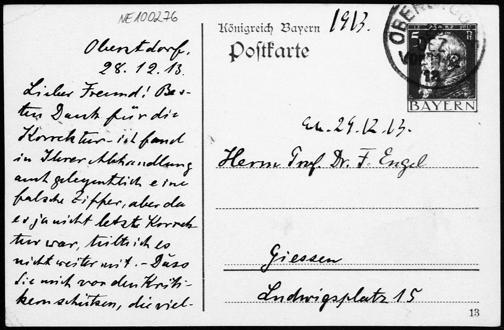 NE100276
Königreich Bayern 1913.
Postkarte
OBERSTDORF
DEZ.
VORM
13
5
BAYERN
Oberstdorf,
28.12.13.
Lieber Freund! Bes-
ten Dank für die
Korrektur – ich fand
in Ihrer Abhandlung
auch gelegentlich eine
falsche Ziffer, aber da
es ja nicht letzte Korrek-
tur war, teilte ich es
nicht weiter mit. – Dass
Sie mich vor den Kriti-
kern schützen, die viel-
an. 29.12.13.
Herrn Prof. Dr. F. Engel
Giessen
Ludwigsplatz 15
13